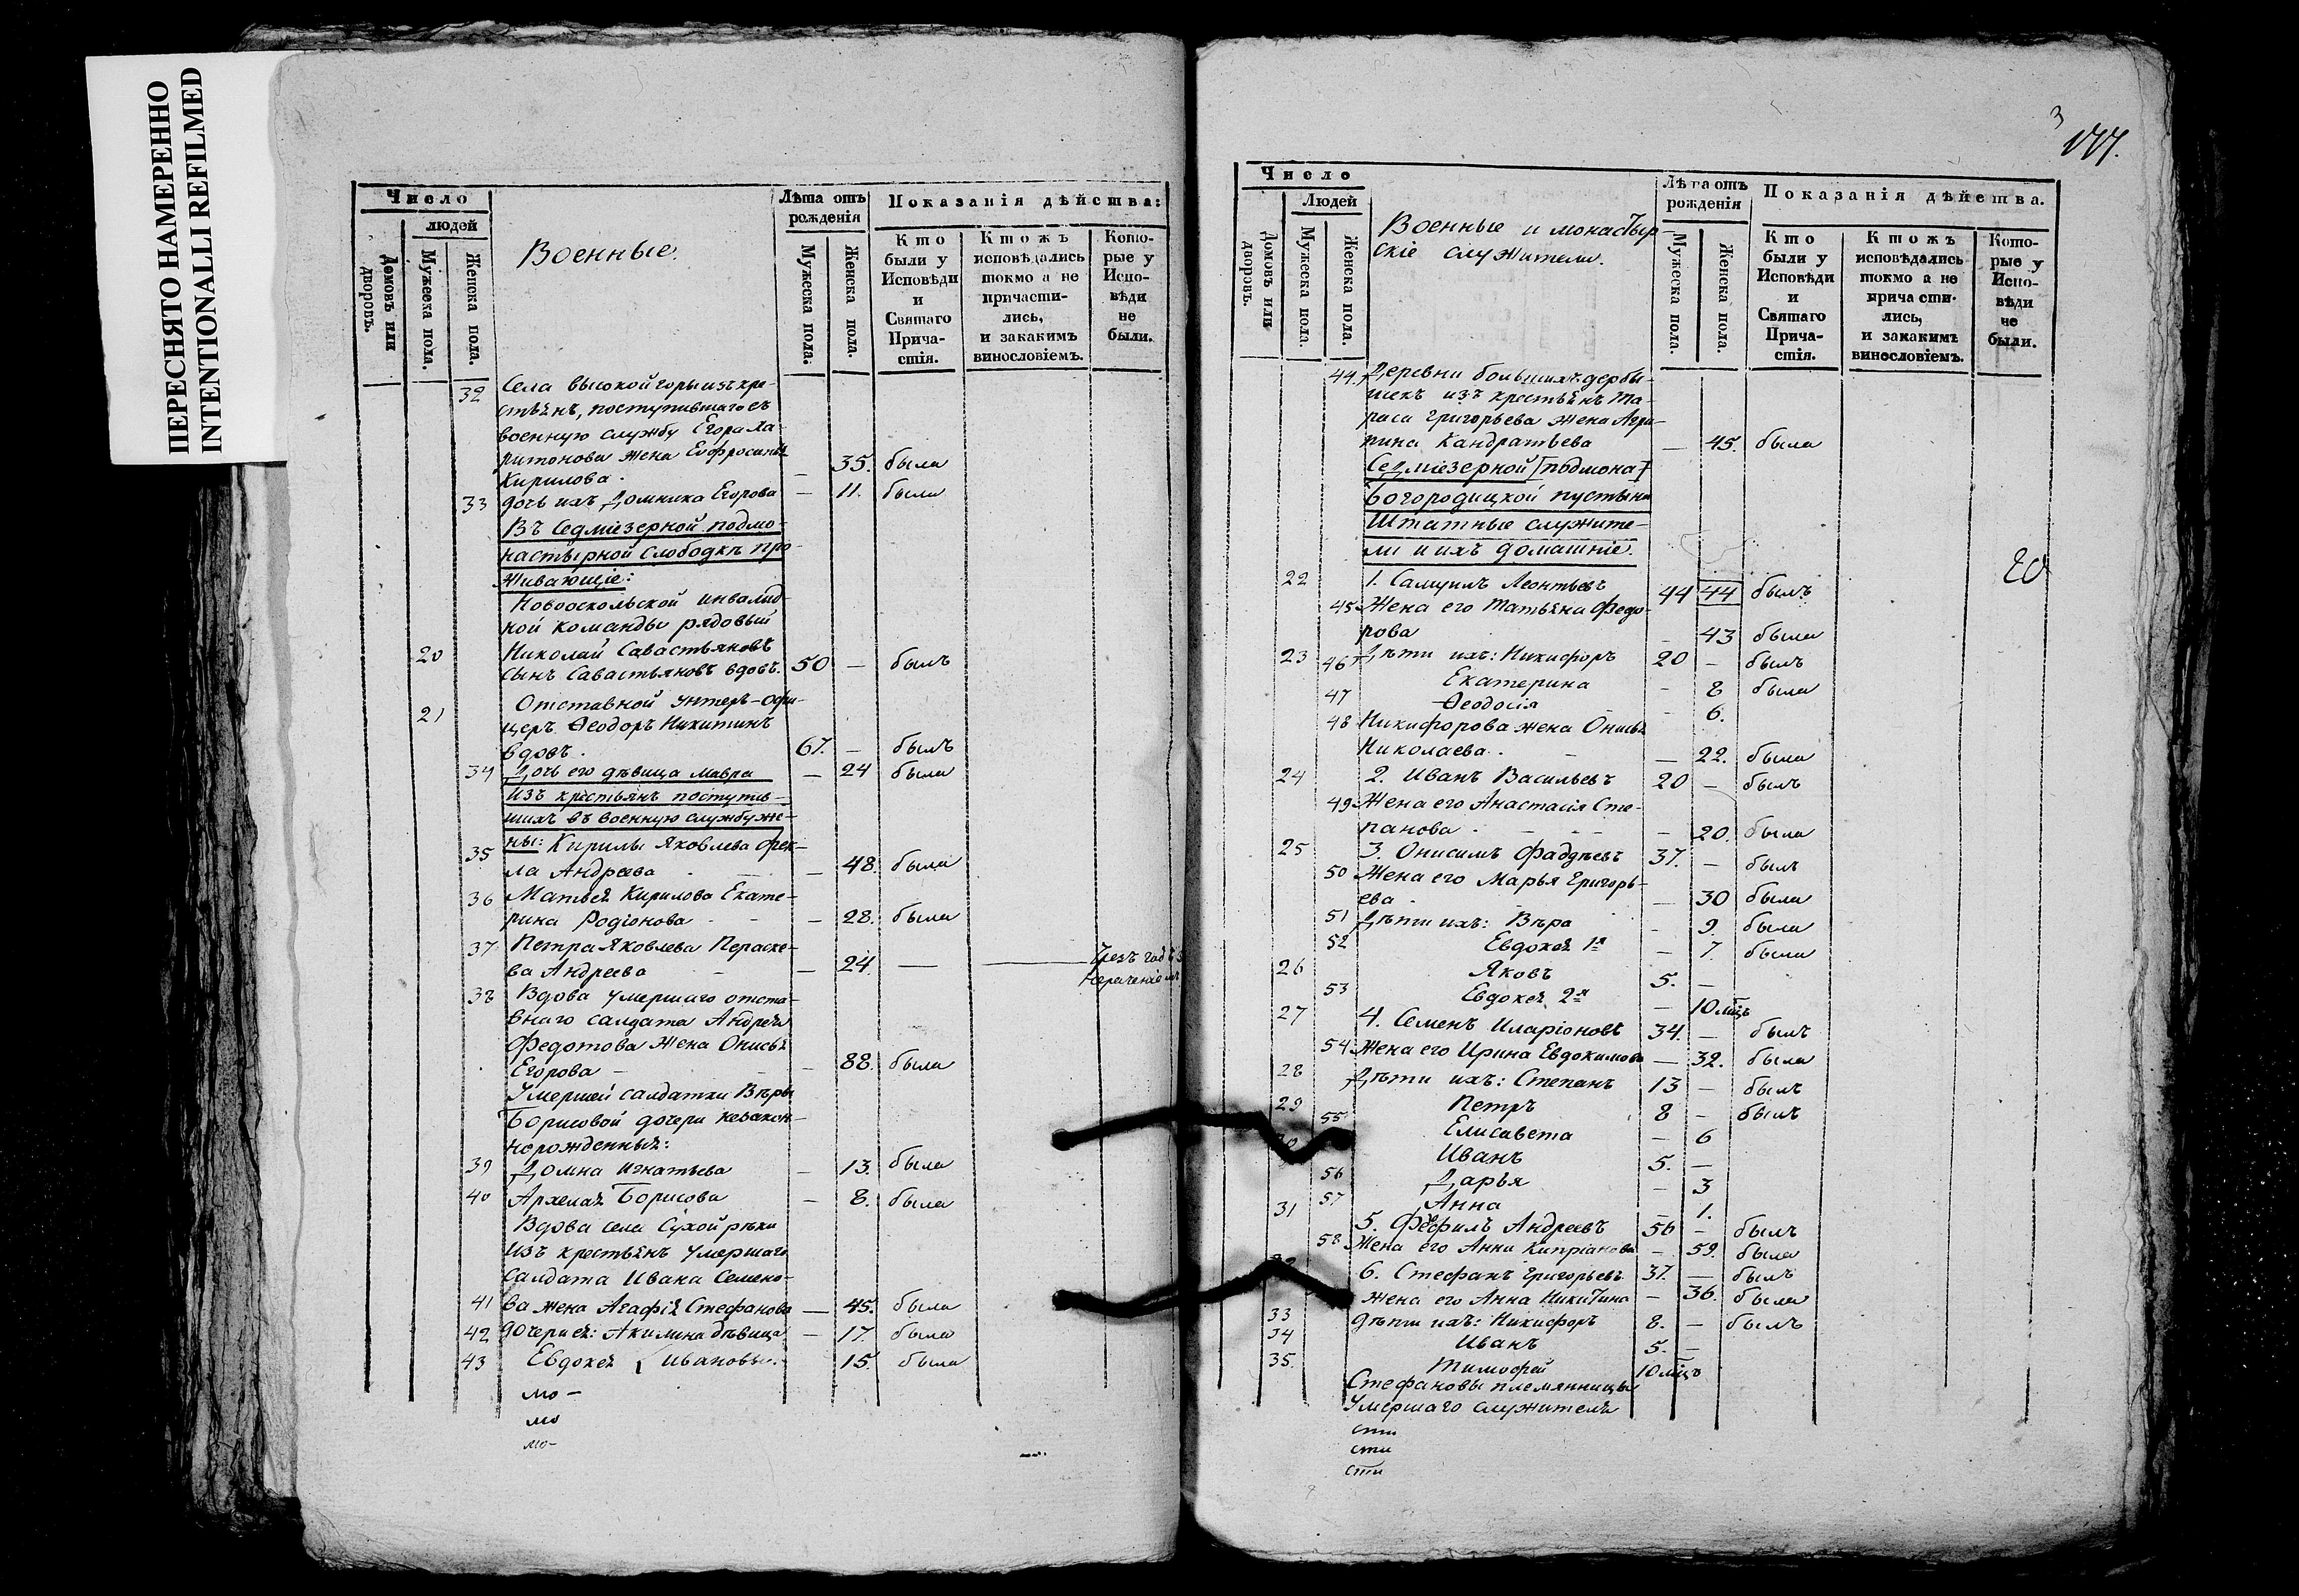 ПЕРЕСНЯТО НАМЕРЕННО
INTENTIONALLI REFILMED
Число
людей
Домовъ или дворовъ.
Мужеска пола.
Женска пола.
Военные.
Лѣта отъ рожденія
Мужеска пола.
Женска пола.
Показанія дѣйства:
Кто были у Исповѣди и Святаго Причастія.
Ктожъ исповѣдались токмо а не причастились, и закакимъ винословіемъ.
Которые у Исповѣди не были.
32 Села высокой горы изъ кре-
стьянъ, поступившаго въ
военную службу Егора Ха-
ритонова жена Евфросинья
Кирилова. — 35. была
33 дочь ихъ Домника Егорова — 11. была
Въ Седміезерной подмо-
настырной слободкѣ про-
живающіе:
Новооскольской инвалид-
ной команды рядовый
20 Николай Савастьяновъ
сынъ Савастьяновъ вдовъ. 50 — былъ
Отставной унтеръ-офи-
21 церъ Ѳеодоръ Никитинъ
вдовъ. 67. — былъ
34 Дочь его дѣвица Мавра — 24 была
Изъ крестьянъ поступив-
шихъ въ военную службу же-
35 ны: Кирилы Яковлева Фек-
ла Андреева — 48. была
36 Матвея Кирилова Екате-
рина Родіонова — 28. была
37 Петра Яковлева Параске-
ва Андреева — 24. —
38 Вдова умершаго отста-
внаго салдата Андрея
Федотова жена Онисья
Егорова — 88. была
Умершей салдатки Вѣры
Борисовой дочери незакон-
норожденныя:
39 Домна Игнатьева — 13. была
40 Архелая Борисова — 8. была
Вдова села Сухой рѣки
изъ крестьянъ умершаго
салдата Ивана Семено-
41 ва жена Агафія Стефанова — 45. была
42 дочери ея: Акилина дѣвица — 17. была
43 Евдокея Ивановы — 15. была
мо-
мо
мо-
3
Число
Людей
Домовъ или дворовъ.
Мужеска пола.
Женска пола.
Военные и монастыр-
скіе служители.
Лѣта отъ рожденія
Мужеска пола.
Женска пола.
Показанія дѣйства.
Кто были у Исповѣди и Святаго Причастія.
Ктожъ исповѣдались токмо а не причастились, и закакимъ винословіемъ.
Которые у Исповѣди не были.
44. Деревни большихъ дербы-
шекъ изъ крестьянъ Та-
раса Григорьева жена Агри-
пина Кандратьева — 45. была
Седміезерной
Богородицкой пустыни
Штатные служите-
ли и ихъ домашніе.
22 1. Самуилъ Леонтьевъ 44 44 былъ
45 Жена его Татьяна Федо-
рова — 43 была
23 46 Дѣти ихъ: Никифоръ 20 — былъ
Екатерина — 8 была
47 Ѳеодосія — 6.
48 Никифорова жена Онисья
Николаева. — 22. была
24 2. Иванъ Васильевъ 20 — былъ
49 Жена его Анастасія Сте-
панова — 20. была
25 3. Онисимъ Фаддѣевъ 37. — былъ
50 Жена его Марья Григорь-
ева — 30 была
51 Дѣти ихъ: Вѣра — 9. была
52 Евдокея 1я — 7. была
26 Яковъ 5. —
53 Евдокея 2я — 10 мѣцъ
27 4. Семенъ Иларіоновъ 34. — былъ
54 Жена его Ирина Евдокимова — 32. была
28 Дѣти ихъ: Степанъ 13 — былъ
29 Петръ 8 — былъ
55 Елисавета — 6
Иванъ 5. —
56 Дарья — 3
57 Анна — 1.
31 5. Феофилъ Андреевъ 56 — былъ
58 Жена его Анна Кипріанова — 59. была
6. Стефанъ Григорьевъ 37. — былъ
Жена его Анна Никитина — 36. была
33 дѣти ихъ: Никифоръ 8. — былъ
34 Иванъ 5. —
35. Тимофей 10 мѣцъ
Стефановы племянницы
Умершаго служителя
сти
сти
сти